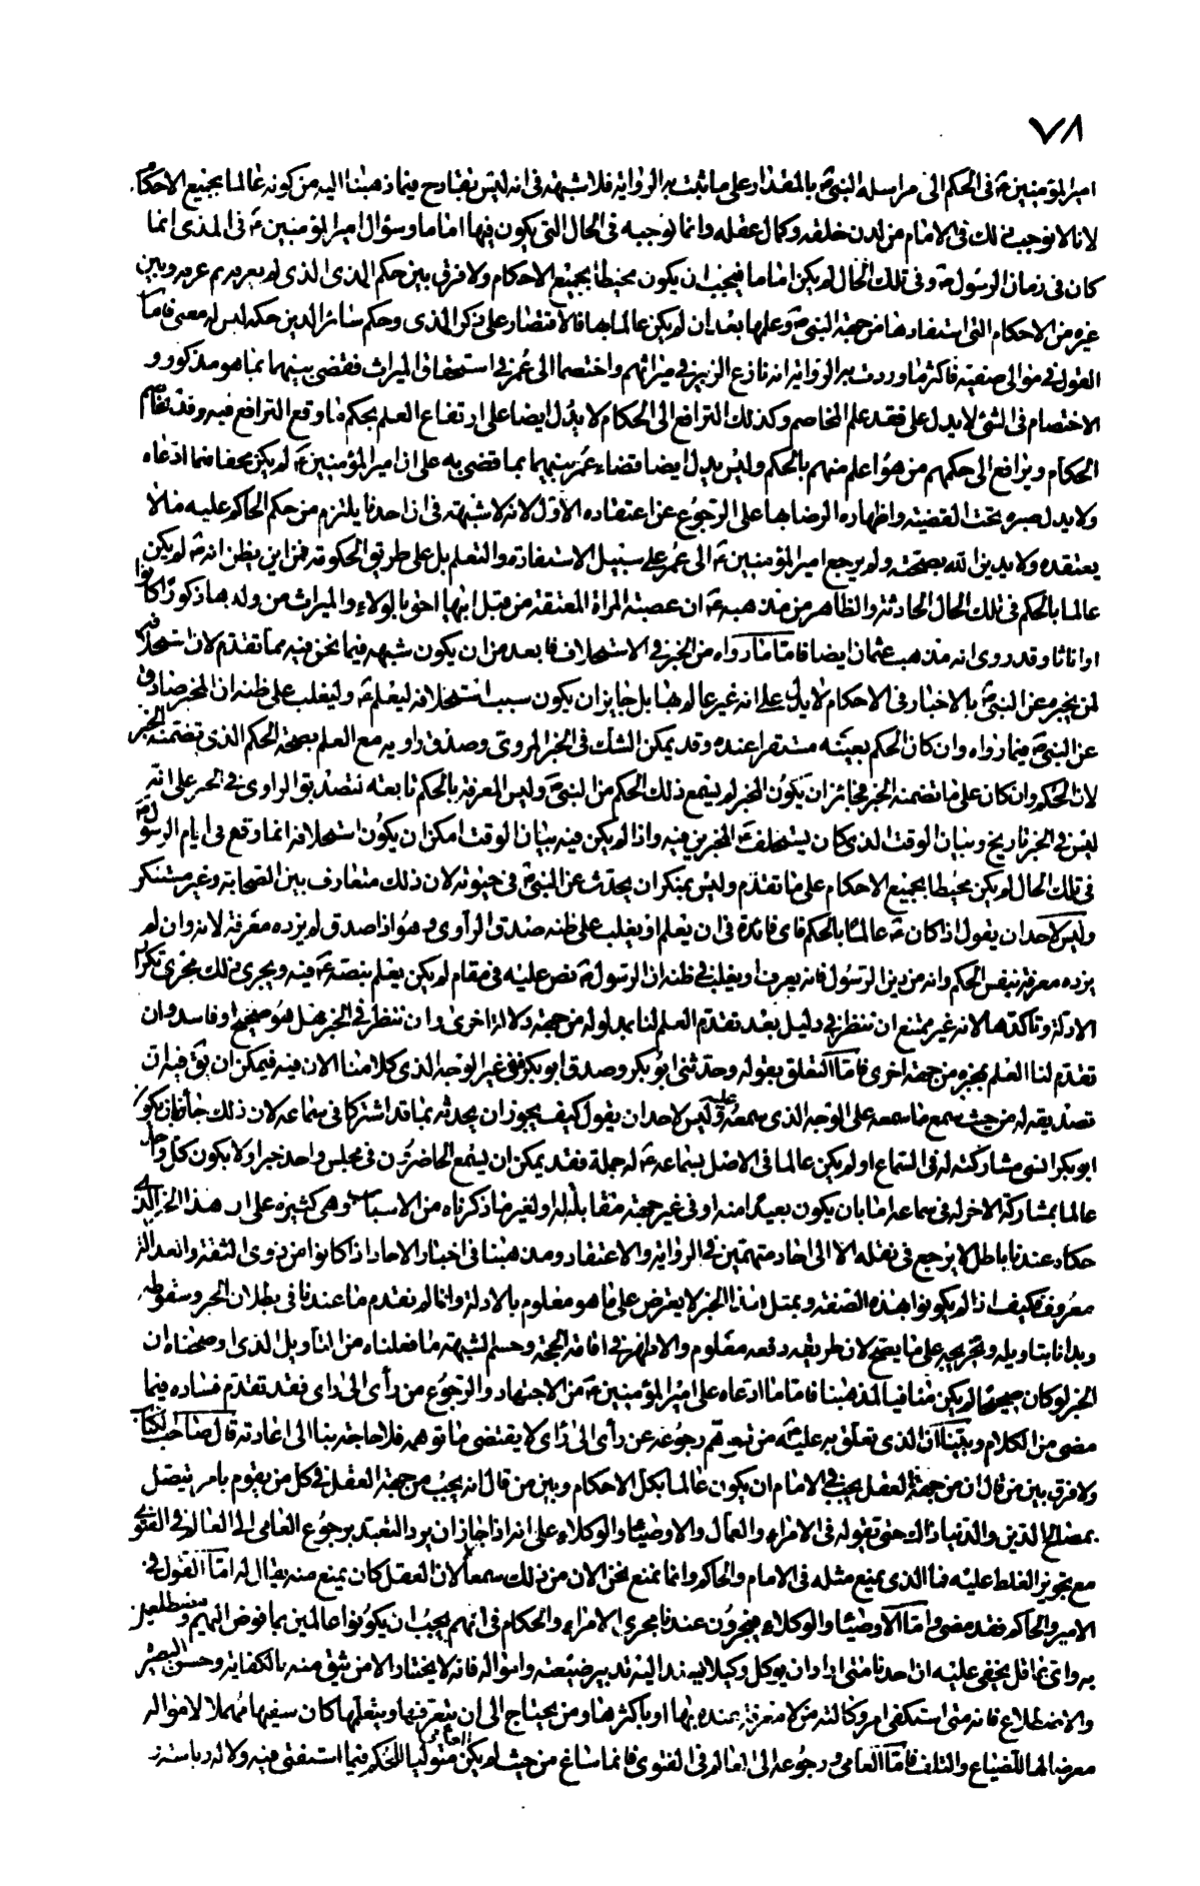 ٧٨
امير المؤمنين ع في الحكم الى مراسلة النبي ص بالمقداد وعلى ما ثبت به الرواية فلا شبهة في انه ليس بقادح فيما ذهبنا اليه من كونه عالما بجميع الاحكام
لانا لا نوجب ذلك في الامام من لدن خلقه وكمال عقله وانما نوجبه في الحال التي يكون فيها اماما وسؤال امير المؤمنين ع في المذى انما
كان في زمان الرسول ص وفي تلك الحال لم يكن اماما فيجب ان يكون محيطا بجميع الاحكام ولا فرق بين حكم المذى الذى لم يعرفه ثم عرفه وبين
غيره من الاحكام التى استفادها من جهة النبي ص وعلمها بعد ان لم يكن عالما بها فالاقتصار على ذكر المذى وحكم سائر الدين حكمه ليس له معنى فاما
القول في موالى صفية فاكثر ما وردت به الرواية انه نازع الزبير في ميراثهم واختصما الى عمر في استحقاق الميراث فقضى بينهما بما هو مذكور و
الاختصام في الشئ لا يدل على فقد علم المخاصم وكذلك الترافع الى الحكام لا يدل ايضا على ارتفاع العلم بحكم ما وقع الترافع فيه وقد يخاصم
الحكام ويرافع الى حكمهم من هو اعلم منهم بالحكم وليس يدل ايضا قضاء عمر بينهما بما قضى به على ان امير المؤمنين ع لم يكن محقا فيما ادعاه
ولا يدل صبره تحت القضية واظهاره الرضا بها على الرجوع عن اعتقاده الاول لانه لا شبهة في ان احدنا يلتزم من حكم الحاكم عليه ما لا
يعتقده ولا يدين الله بصحته ولم يرجع امير المؤمنين ع الى عمر على سبيل الاستفادة والتعلم بل على طريق الحكومة فمن اين يظن انه ع لم يكن
عالما بالحكم في تلك الحال الحادثة والظاهر من مذهبه ع ان عصبة المراة المعتقة من قبل ابيها احق بالولاء والميراث من ولدها ذكورا كانوا
او اناثا وقد روى انه مذهب عثمان ايضا فاما ما رواه من الخبر في الاستحلاف فابعد من ان يكون شبهة فيما نحن فيه مما تقدم لان استحلافه
لمن يخبره عن النبي ص بالاخبار في الاحكام لا يدل على انه غير عالم بها بل جايز ان يكون سبب استحلافه ليعلم ع وليغلب على ظنه ان المخبر صادق
عن النبي ص فيما رواه وان كان الحكم بعينه مستقرا عنده وقد يمكن الشك في الخبر المروى وصدق راويه مع العلم بصحة الحكم الذى تضمنه الخبر
لان الحكم وان كان على ما تضمنه الخبر فجائز ان يكون المخبر لم يسمع ذلك الحكم من النبي ص وليس المعرفة بالحكم تابعة لتصديق الراوى في الخبر على انه
ليس في الخبر تاريخ وبيان الوقت الذى كان يستحلف ع المخبرين فيه واذا لم يكن فيه بيان الوقت امكن ان يكون استحلافه انما وقع في ايام الرسول ص
في تلك الحال لم يكن محيطا بجميع الاحكام على ما تقدم وليس بمنكر ان يحدث عن النبي ص في حيوته لان ذلك متعارف بين الصحابة وغير مستنكر
وليس لاحد ان يقول اذا كان ع عالما بالحكم فاى فائدة في ان يعلم او يغلب على ظنه صدق الراوى وهو اذا صدق لم يزده معرفة لانه وان لم
يزده معرفة بنفس الحكم وانه من دين الرسول فانه يعرف او يغلب في ظنه ان الرسول ص نص عليه في مقام لم يكن يعلم بنصه ع فيه ويجرى ذلك مجرى تكرار
الادلة وتأكدها لانه غير ممتنع ان ننظر في دليل بعد تقدم العلم لنا بمدلوله من جهة دلالة اخرى وان ننظر في الخبر هل هو صحيح او فاسد وان
تقدم لنا العلم بخبره من جهة اخرى فاما التعلق بقوله وحدثنى ابو بكر وصدق ابو بكر ففى غير الوجه الذى كلامنا الان فيه فيمكن ان يق فيه ان
تصديقه له من حيث سمع ما سمعه على الوجه الذى سمعه عليه وليس لاحد ان يقول كيف يجوز ان يحدثه بما قد اشتركا في سماعه لان ذلك جائز بان يكون
ابو بكر انسى مشاركته له في السماع او لم يكن عالما في الاصل بسماعه ع له جملة فقد يمكن ان يسمع الحاضرون في مجلس واحد خبرا ولا يكون كل واحد
عالما بمشاركة الاخر له في سماعه اما بان يكون بعيدا منه او في غير جهة مقابلة له او لغير ما ذكرناه من الاسباب وهى كثيرة على ان هذا الخبر الذى
حكاه عندنا باطل لا يرجع في نقله الا الى احاد متهمين في الرواية والاعتقاد ومذهبنا في اخبار الاحاد اذا كانوا من ذوى الثقة والعدالة
معروف فكيف اذا لم يكونوا بهذه الصفة وبمثل هذا الخبر لا يعترض على ما هو معلوم بالادلة وانما لم نقدم ما عندنا في بطلان الخبر وسقوطه
وبدانا بتاويله وتخريجه على ما يصح لان طريق دفعه معلوم والاظهر في اقامة الحجة وحسم الشبهة ما فعلناه من التأويل الذى اوضحناه ان
الخبر لو كان صحيحا لم يكن منافيا لمذهبنا فاما ما ادعاه على امير المؤمنين ع من الاجتهاد والرجوع من رأى الى راى فقد تقدم فساده فيما
مضى من الكلام وبينا ان الذى تعلق به عليه من توهم رجوعه عن رأى الى رأى لا يقتضى ما توهمه فلا حاجة بنا الى اعادته قال صاحب الكتاب
ولا فرق بين من قال ان من جهة العقل يجب في الامام ان يكون عالما بكل الاحكام وبين من قال انه يجب من جهة العقل في كل من يقوم بامر يتصل
بمصالح الدين والدنيا ذلك حتى تقوله في الامراء والعمال والاوصياء والوكلاء على انه اذا جاز ان يرد التعبد برجوع العامى الى العالم في الفتوى
مع تجويز الغلط عليه فما الذى يمنع مثله في الامام والحاكم وانما نمنع نحن الان من ذلك سمعا لا ان العقل كان يمنع منه يقال له اما القول في
الامير والحاكم فقد مضى واما الاوصياء والوكلاء فيجرون عندنا مجرى الامراء والحكام في انهم يجب ان يكونوا عالمين بما فوض اليهم ومضطلعين
به واى عاقل يخفى عليه ان احدنا متى اراد ان يوكل وكيلا يسند اليه تدبير ضيعته وامواله فانه لا يختار الا من يثق منه بالكفاية وحسن البصيرة
والاضطلاع فانه متى استكفى امر وكالته من لا معرفة عنده بها او باكثرها ومن يحتاج الى ان يتعرفها ويتعلمها كان سفيها مهملا لامواله
معرضا لها للضياع والتلف فاما العامى ورجوعه الى العالم في الفتوى فانما ساغ من حيث لم يكن العامى متوليا للحكم فيما استفتى فيه ولا له رياسة